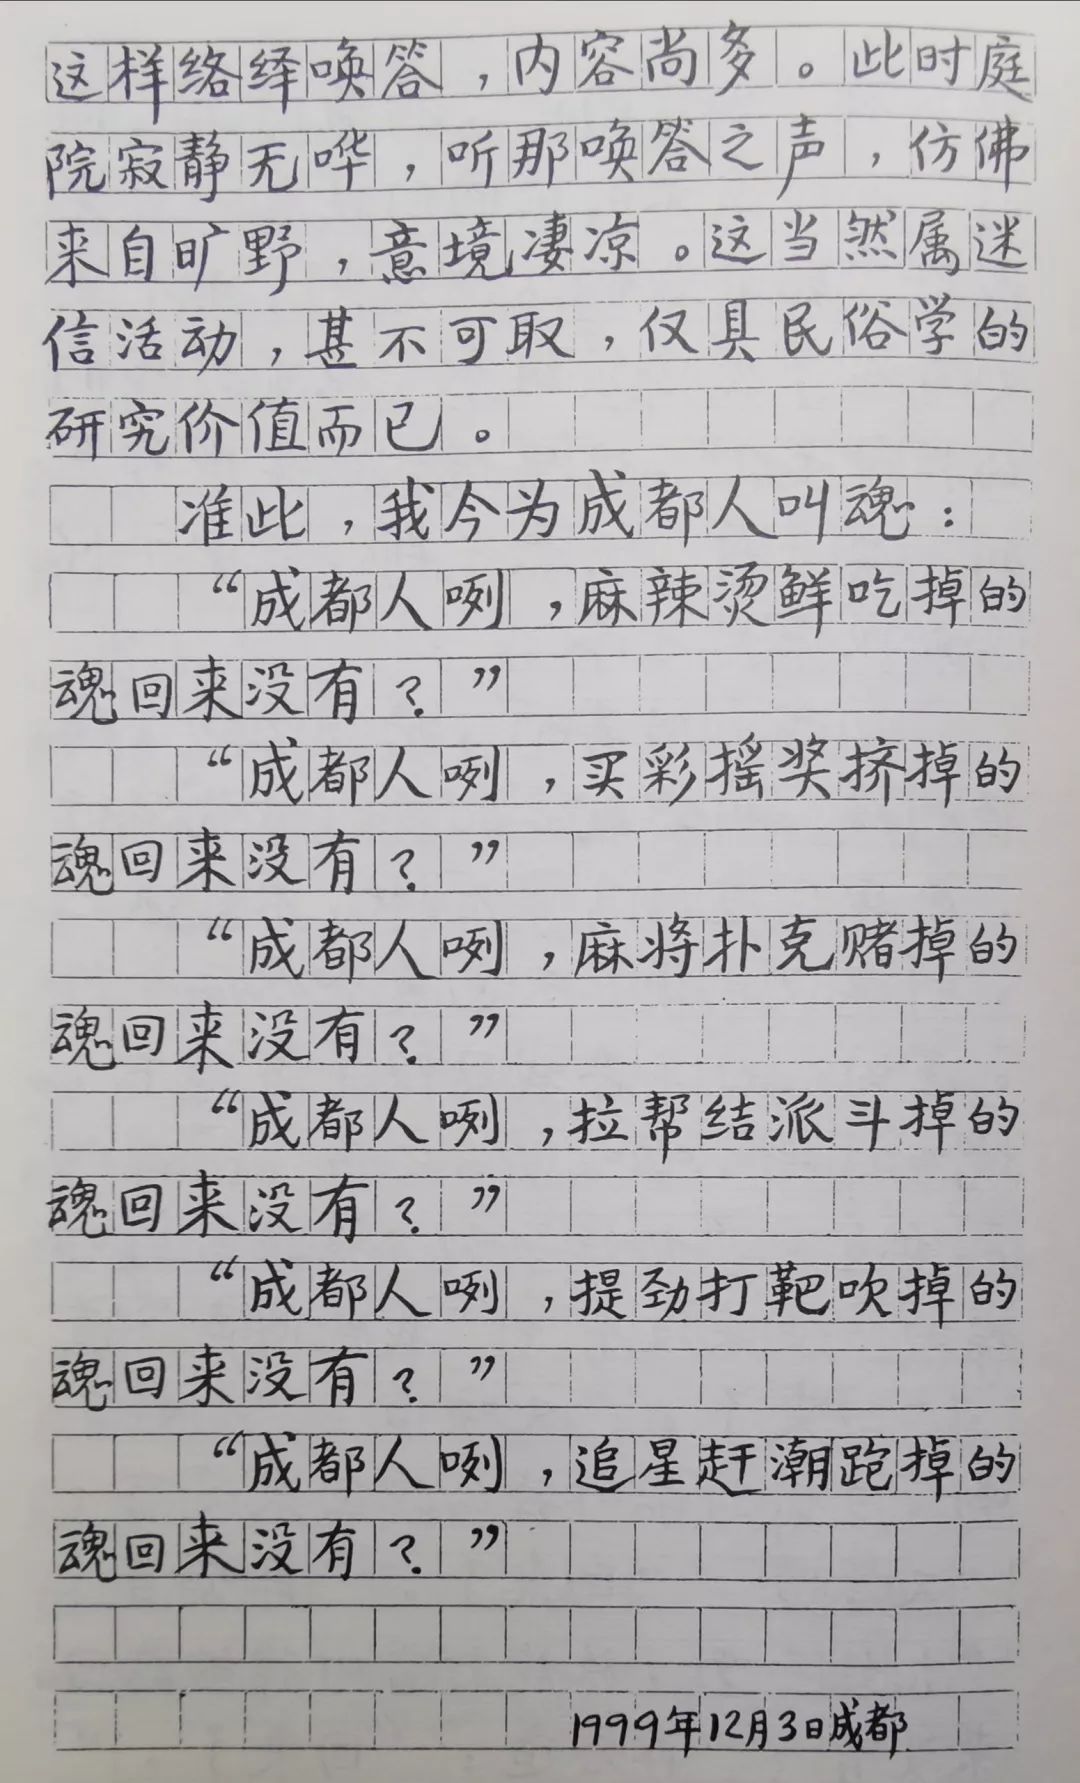 这样络绎唤答，内容尚多。此时庭
院寂静无哗，听那唤答之声，仿佛
来自旷野，意境凄凉。这当然属迷
信活动，甚不可取，仅具民俗学的
研究价值而已。
准此，我今为成都人叫魂：
“成都人咧，麻辣烫鲜吃掉的
魂回来没有？”
“成都人咧，买彩摇奖挤掉的
魂回来没有？”
“成都人咧，麻将扑克赌掉的
魂回来没有？”
“成都人咧，拉帮结派斗掉的
魂回来没有？”
“成都人咧，提劲打靶吹掉的
魂回来没有？”
“成都人咧，追星赶潮跑掉的
魂回来没有？”
1999年12月3日成都